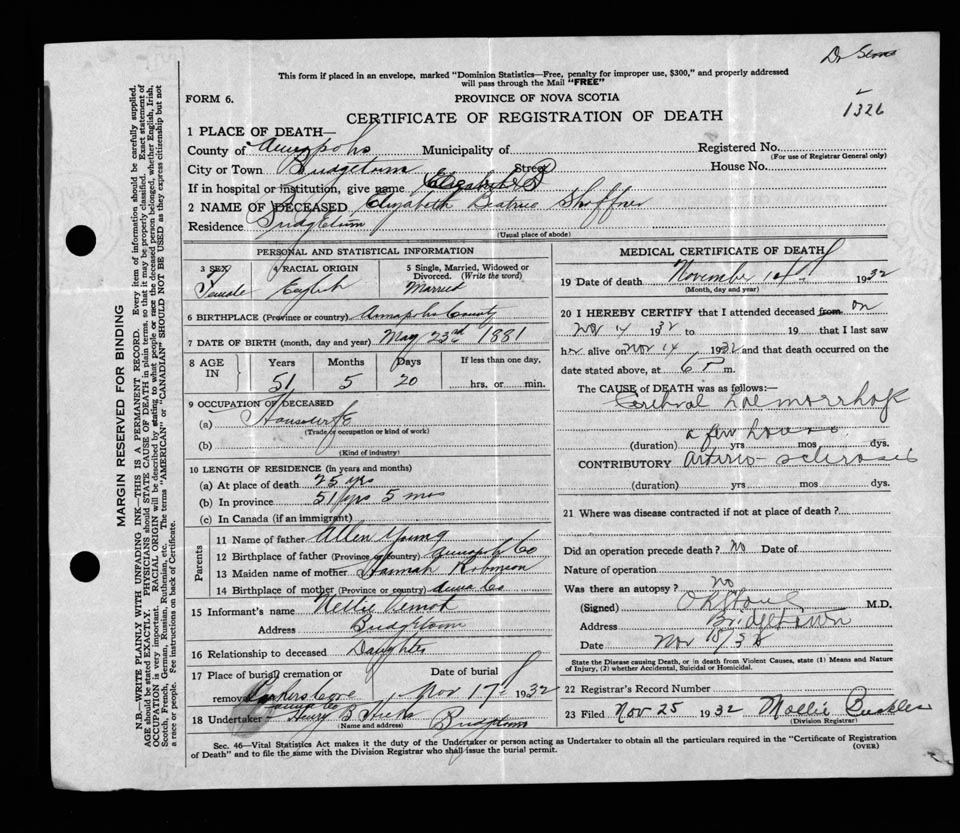 This form if placed in an envelope, marked "Dominion Statistics—Free, penalty for improper use, $300," and properly addressed
will pass through the Mail "FREE"
FORM 6.
PROVINCE OF NOVA SCOTIA
CERTIFICATE OF REGISTRATION OF DEATH
1326
1 PLACE OF DEATH—
County of Annapolis Municipality of
Registered No.
(For use of Registrar General only)
City or Town Bridgetown Street
House No.
If in hospital or institution, give name Elizabeth B
2 NAME OF DECEASED Elizabeth Beatrice Shaffner
Residence Bridgetown
(Usual place of abode)
PERSONAL AND STATISTICAL INFORMATION
3 SEX Female
4 RACIAL ORIGIN English
5 Single, Married, Widowed or Divorced. (Write the word) Married
6 BIRTHPLACE (Province or country) Annapolis County
7 DATE OF BIRTH (month, day and year) May 23rd 1881
8 AGE IN
Years Months Days If less than one day,
51 5 20 hrs. or min.
9 OCCUPATION OF DECEASED
(a) Housewife
(Trade, occupation or kind of work)
(b)
(Kind of industry)
10 LENGTH OF RESIDENCE (in years and months)
(a) At place of death 25 yrs
(b) In province 51 yrs 5 mos
(c) In Canada (if an immigrant)
Parents
11 Name of father Allen Young
12 Birthplace of father (Province or country) Annapolis Co
13 Maiden name of mother Hannah Robinson
14 Birthplace of mother (Province or country) Anna Co
15 Informant's name Nellie
Address Bridgetown
16 Relationship to deceased Daughter
17 Place of burial, cremation or removal Parkers Cove
Date of burial Nov 17 1932
18 Undertaker Henry B Hicks Bridgetown
(Name and address)
MEDICAL CERTIFICATE OF DEATH
19 Date of death November 14 1932
(Month, day and year)
20 I HEREBY CERTIFY that I attended deceased from on
Nov 14 1932 to 19 that I last saw
her alive on Nov 14 1932 and that death occurred on the
date stated above, at 6 P m.
The CAUSE OF DEATH was as follows:—
Cerebral Haemorrhage
a few hours
(duration) yrs mos dys.
CONTRIBUTORY arterio-sclerosis
(duration) yrs mos dys.
21 Where was disease contracted if not at place of death?
Did an operation precede death? No Date of
Nature of operation
Was there an autopsy? no
(Signed) M.D.
Address Bridgetown
Date Nov 18/32
State the Disease causing Death, or in death from Violent Causes, state (1) Means and Nature
of Injury, (2) whether Accidental, Suicidal or Homicidal.
22 Registrar's Record Number
23 Filed Nov 25 1932 Mollie
(Division Registrar)
Sec. 46—Vital Statistics Act makes it the duty of the Undertaker or person acting as Undertaker to obtain all the particulars required in the "Certificate of Registration
of Death" and to file the same with the Division Registrar who shall issue the burial permit.
(OVER)
MARGIN RESERVED FOR BINDING
N.B.—WRITE PLAINLY WITH UNFADING INK—THIS IS A PERMANENT RECORD. Every item of information should be carefully supplied.
AGE should be stated EXACTLY. PHYSICIANS should STATE CAUSE OF DEATH in plain terms, so that it may be properly classified. Exact statement of
OCCUPATION is very important. RACIAL ORIGIN will be described by stating to what people or race the deceased person belonged, whether English, Irish,
Scotch, French, German, Russian, Ruthenian, etc. The terms "AMERICAN" or "CANADIAN" SHOULD NOT BE USED as they express citizenship but not
a race or people. Fee instructions on back of Certificate.